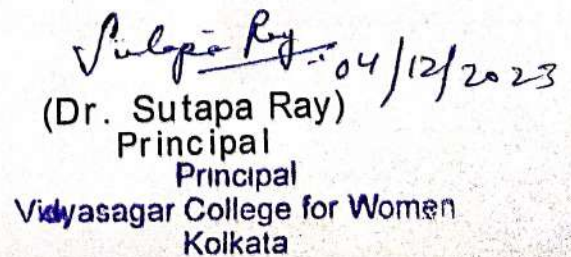 Sutapa Ray 04/12/2023
(Dr. Sutapa Ray)
Principal
Principal
Vidyasagar College for Women
Kolkata